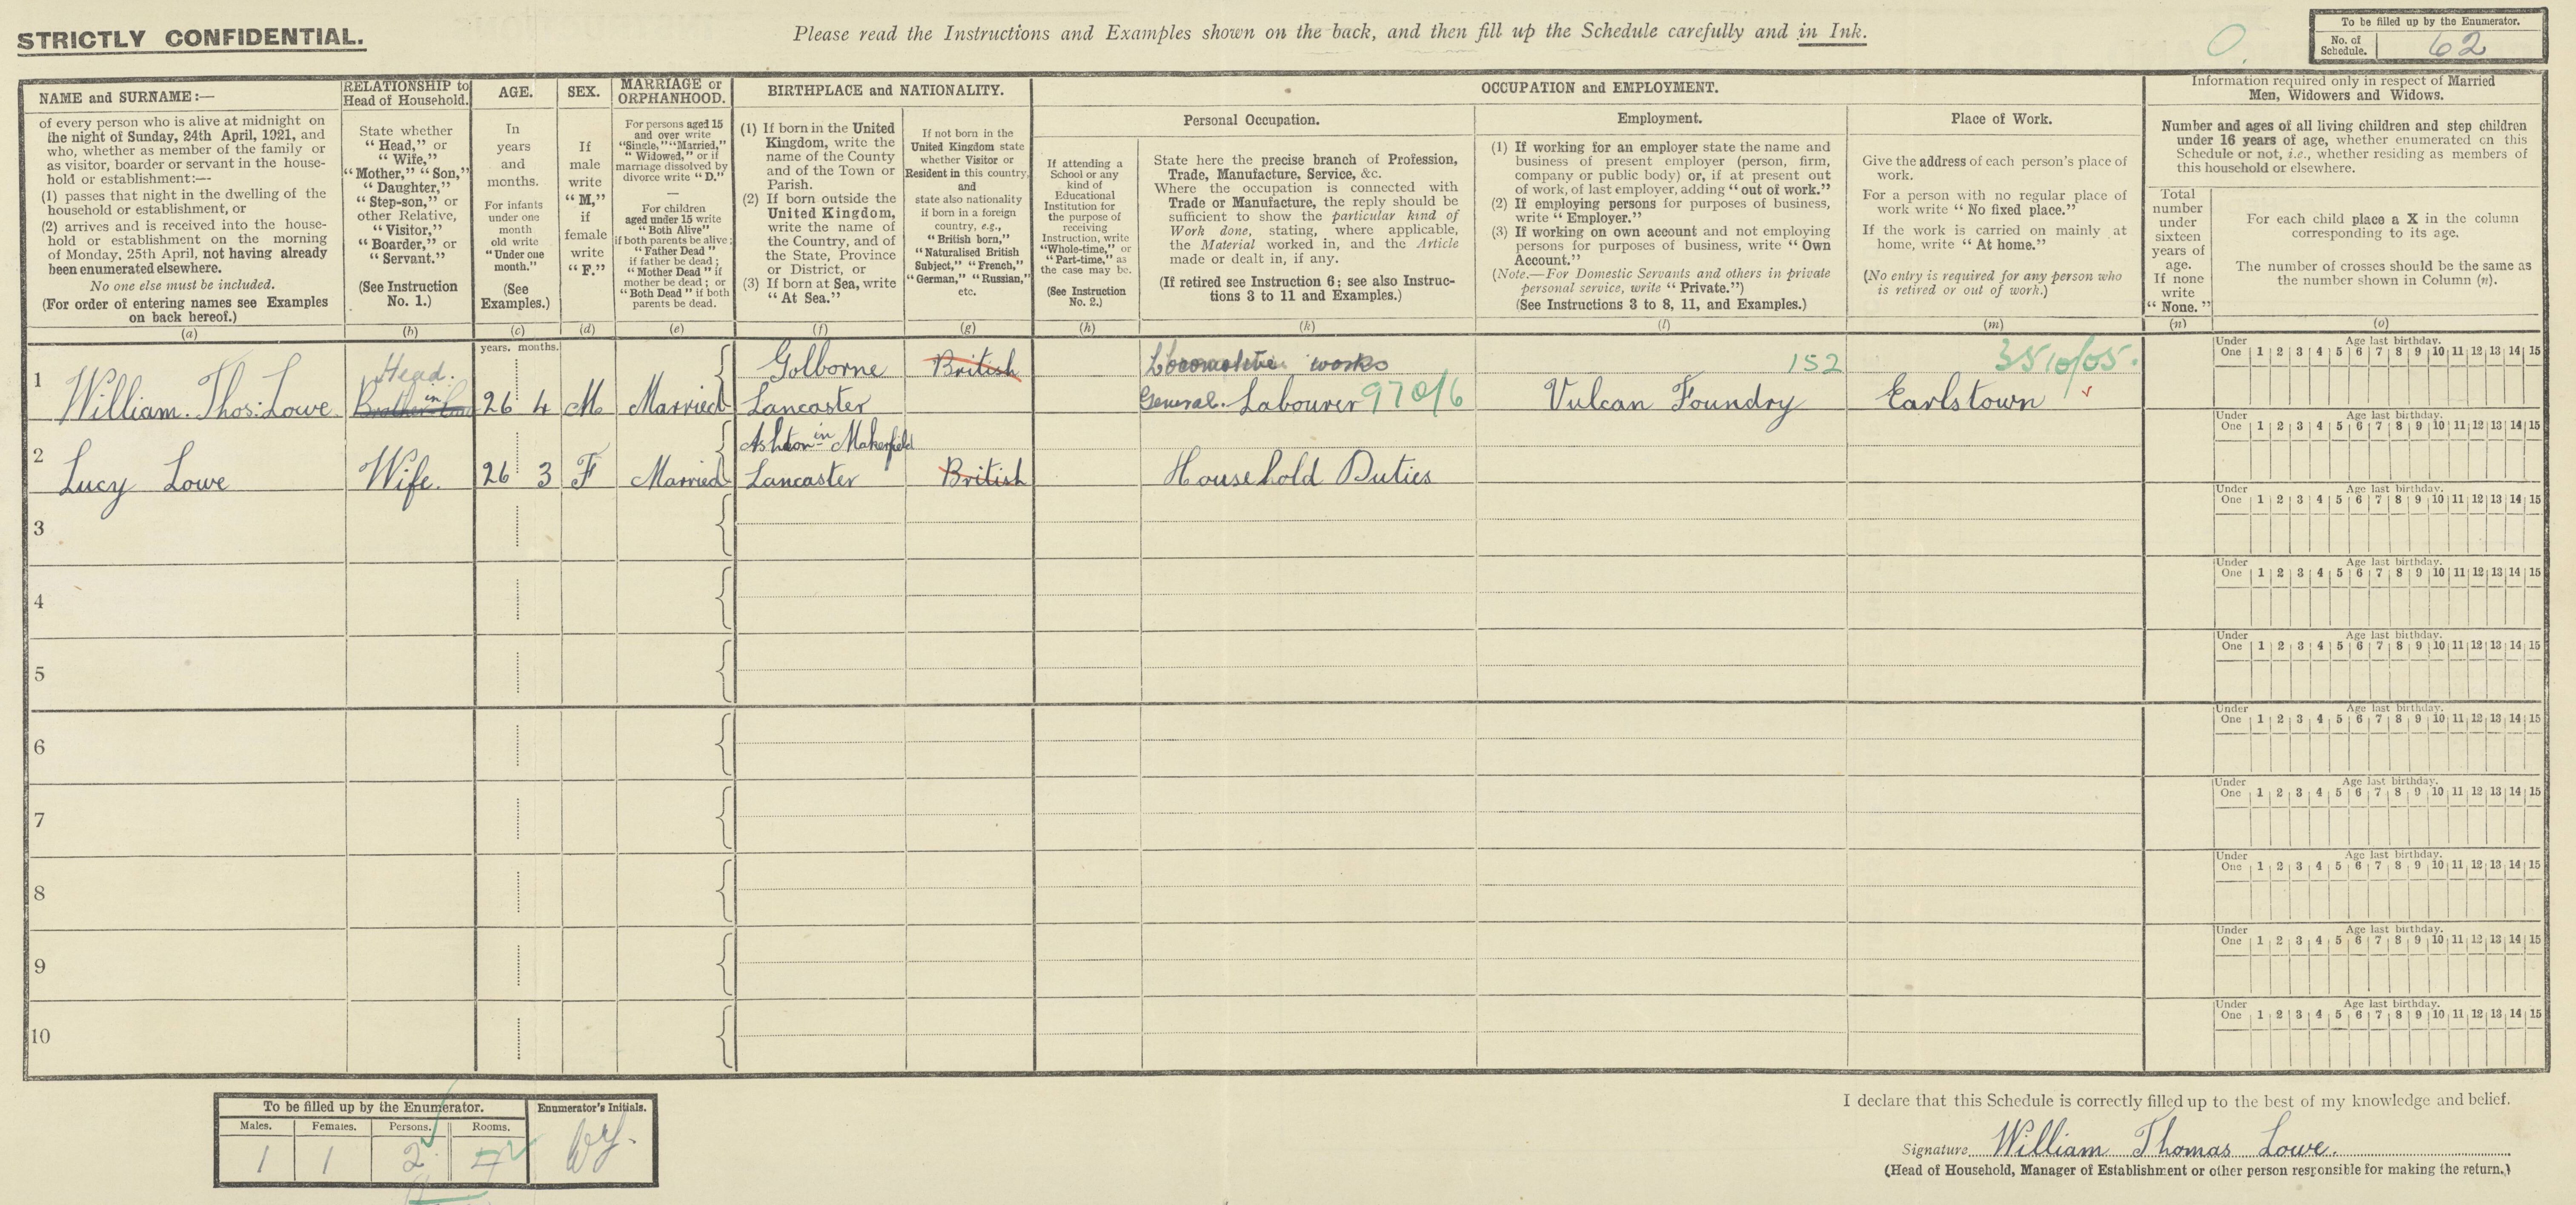 STRICTLY CONFIDENTIAL.
Please read the Instructions and Examples shown on the back, and then fill up the Schedule carefully and in Ink.
To be filled up by the Enumerator.
No. of Schedule.
62
NAME and SURNAME:—
of every person who is alive at midnight on
the night of Sunday, 24th April, 1921, and
who, whether as member of the family or
as visitor, boarder or servant in the house-
hold or establishment:—
(1) passes that night in the dwelling of the
household or establishment, or
(2) arrives and is received into the house-
hold or establishment on the morning
of Monday, 25th April, not having already
been enumerated elsewhere.
No one else must be included.
(For order of entering names see Examples
on back hereof.)
(a)
RELATIONSHIP to
Head of Household.
State whether
"Head," or
"Wife,"
"Mother," "Son,"
"Daughter,"
"Step-son," or
other Relative,
"Visitor,"
"Boarder," or
"Servant."
(See Instruction
No. 1.)
(b)
AGE.
In
years
and
months.
For infants
under one
month
old write
"Under one
month."
(See
Examples.)
(c)
SEX.
If
male
write
"M,"
if
female
write
"F."
(d)
MARRIAGE or
ORPHANHOOD.
For persons aged 15
and over write
"Single," "Married,"
"Widowed," or if
marriage dissolved by
divorce write "D."
—
For children
aged under 15 write
"Both Alive"
if both parents be alive;
"Father Dead"
if father be dead;
"Mother Dead" if
mother be dead; or
"Both Dead" if both
parents be dead.
(e)
BIRTHPLACE and NATIONALITY.
(1) If born in the United
Kingdom, write the
name of the County
and of the Town or
Parish.
(2) If born outside the
United Kingdom,
write the name of
the Country, and of
the State, Province
or District, or
(3) If born at Sea, write
"At Sea."
(f)
If not born in the
United Kingdom state
whether Visitor or
Resident in this country,
and
state also nationality
if born in a foreign
country, e.g.,
"British born,"
"Naturalised British
Subject," "French,"
"German," "Russian,"
etc.
(g)
OCCUPATION and EMPLOYMENT.
Personal Occupation.
If attending a
School or any
kind of
Educational
Institution for
the purpose of
receiving
Instruction, write
"Whole-time," or
"Part-time," as
the case may be.
(See Instruction
No. 2.)
(h)
State here the precise branch of Profession,
Trade, Manufacture, Service, &c.
Where the occupation is connected with
Trade or Manufacture, the reply should be
sufficient to show the particular kind of
Work done, stating, where applicable,
the Material worked in, and the Article
made or dealt in, if any.
(If retired see Instruction 6; see also Instruc-
tions 3 to 11 and Examples.)
(k)
Employment.
(1) If working for an employer state the name and
business of present employer (person, firm,
company or public body) or, if at present out
of work, of last employer, adding "out of work."
(2) If employing persons for purposes of business,
write "Employer."
(3) If working on own account and not employing
persons for purposes of business, write "Own
Account."
(Note.—For Domestic Servants and others in private
personal service, write "Private.")
(See Instructions 3 to 8, 11, and Examples.)
(l)
Place of Work.
Give the address of each person's place of
work.
For a person with no regular place of
work write "No fixed place."
If the work is carried on mainly at
home, write "At home."
(No entry is required for any person who
is retired or out of work.)
(m)
Information required only in respect of Married
Men, Widowers and Widows.
Number and ages of all living children and step children
under 16 years of age, whether enumerated on this
Schedule or not, i.e., whether residing as members of
this household or elsewhere.
Total
number
under
sixteen
years of
age.
If none
write
"None."
(n)
For each child place a X in the column
corresponding to its age.
The number of crosses should be the same as
the number shown in Column (n).
(o)
years. months.
1
William. Thos: Lowe
Head.
Brother in law
26 4
M
Married
Golborne
Lancaster
British
Locomotive works
General. Labourer 970/6
152
Vulcan Foundry
Earlstown
Under One
Age last birthday.
1 2 3 4 5 6 7 8 9 10 11 12 13 14 15
2
Lucy Lowe
Wife.
26 3
F
Married
Ashton in Makerfield
Lancaster
British
Household Duties
Under One
Age last birthday.
1 2 3 4 5 6 7 8 9 10 11 12 13 14 15
3
Under One
Age last birthday.
1 2 3 4 5 6 7 8 9 10 11 12 13 14 15
4
Under One
Age last birthday.
1 2 3 4 5 6 7 8 9 10 11 12 13 14 15
5
Under One
Age last birthday.
1 2 3 4 5 6 7 8 9 10 11 12 13 14 15
6
Under One
Age last birthday.
1 2 3 4 5 6 7 8 9 10 11 12 13 14 15
7
Under One
Age last birthday.
1 2 3 4 5 6 7 8 9 10 11 12 13 14 15
8
Under One
Age last birthday.
1 2 3 4 5 6 7 8 9 10 11 12 13 14 15
9
Under One
Age last birthday.
1 2 3 4 5 6 7 8 9 10 11 12 13 14 15
10
Under One
Age last birthday.
1 2 3 4 5 6 7 8 9 10 11 12 13 14 15
To be filled up by the Enumerator.
Males. Females. Persons. Rooms.
1 1 2
Enumerator's Initials.
I declare that this Schedule is correctly filled up to the best of my knowledge and belief.
Signature William Thomas Lowe.
(Head of Household, Manager of Establishment or other person responsible for making the return.)